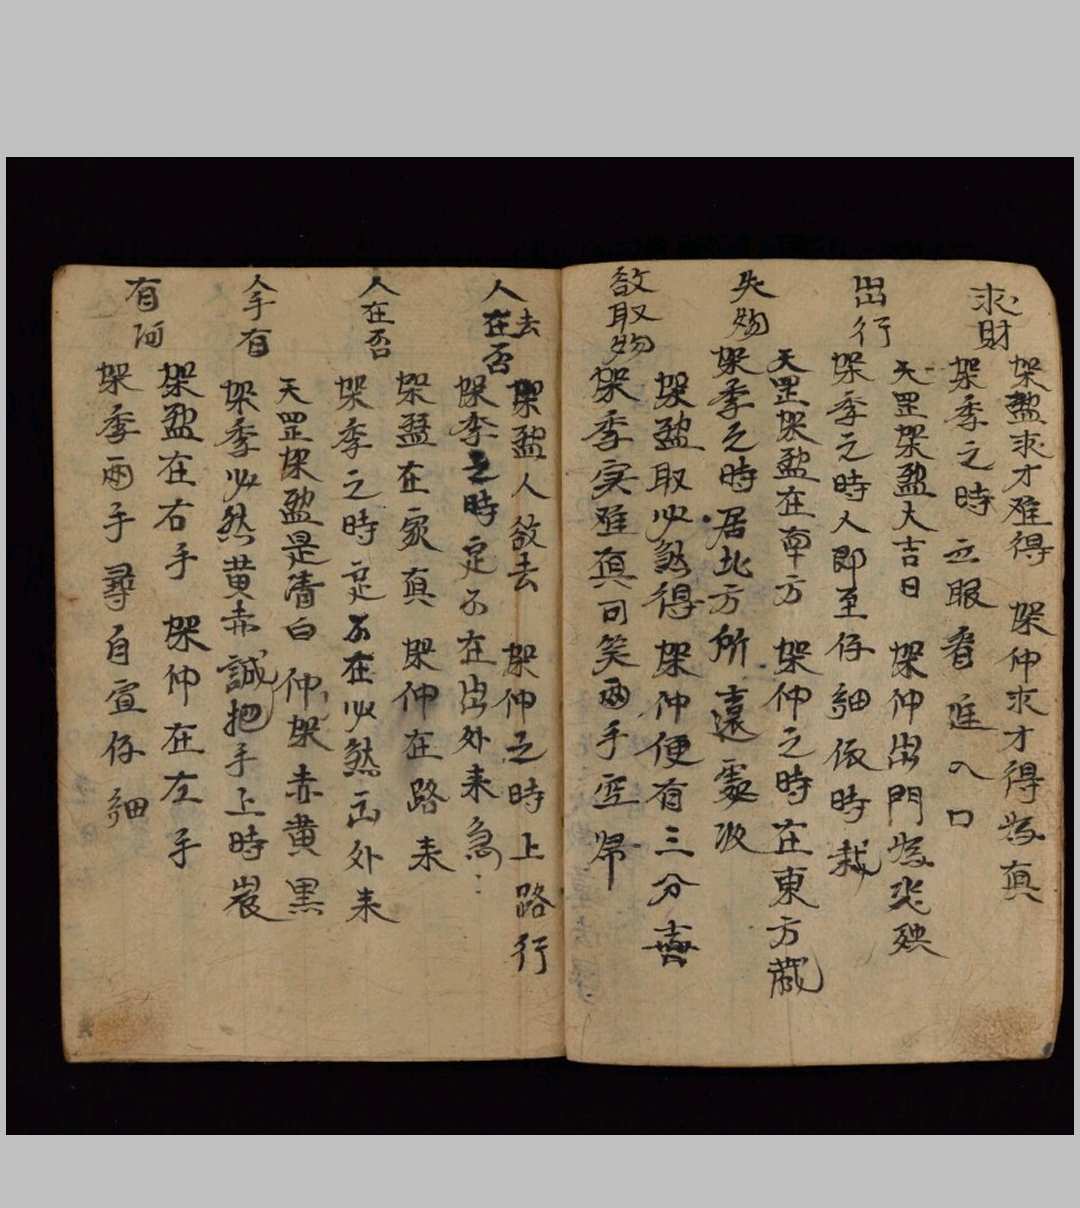 求財
架盁求才难得 架仲求才得為真
架季之時立眼看進入口
出行
天罡架盁大吉日 架仲出門為災殃
架季之時人即至仔細依時裁
失物
天罡架盁在南方 架仲之時在東方藏
架季之時居北方所遠處收
敨取物
架盁取必能得 架仲便有三分喜
架季实难真可笑兩手空歸
人去在否
架盁人敨去 架仲之時上路行
架季之時定不在出外来急
人在否
架盁在家真 架仲在路来
架季之時定不在必然出外来
人手有
天罡架盁是青白 仲架赤黄黑
架季必然黄赤誠把手上時
有阿
架盁在右手 架仲在左手
架季兩手尋自宣仔細